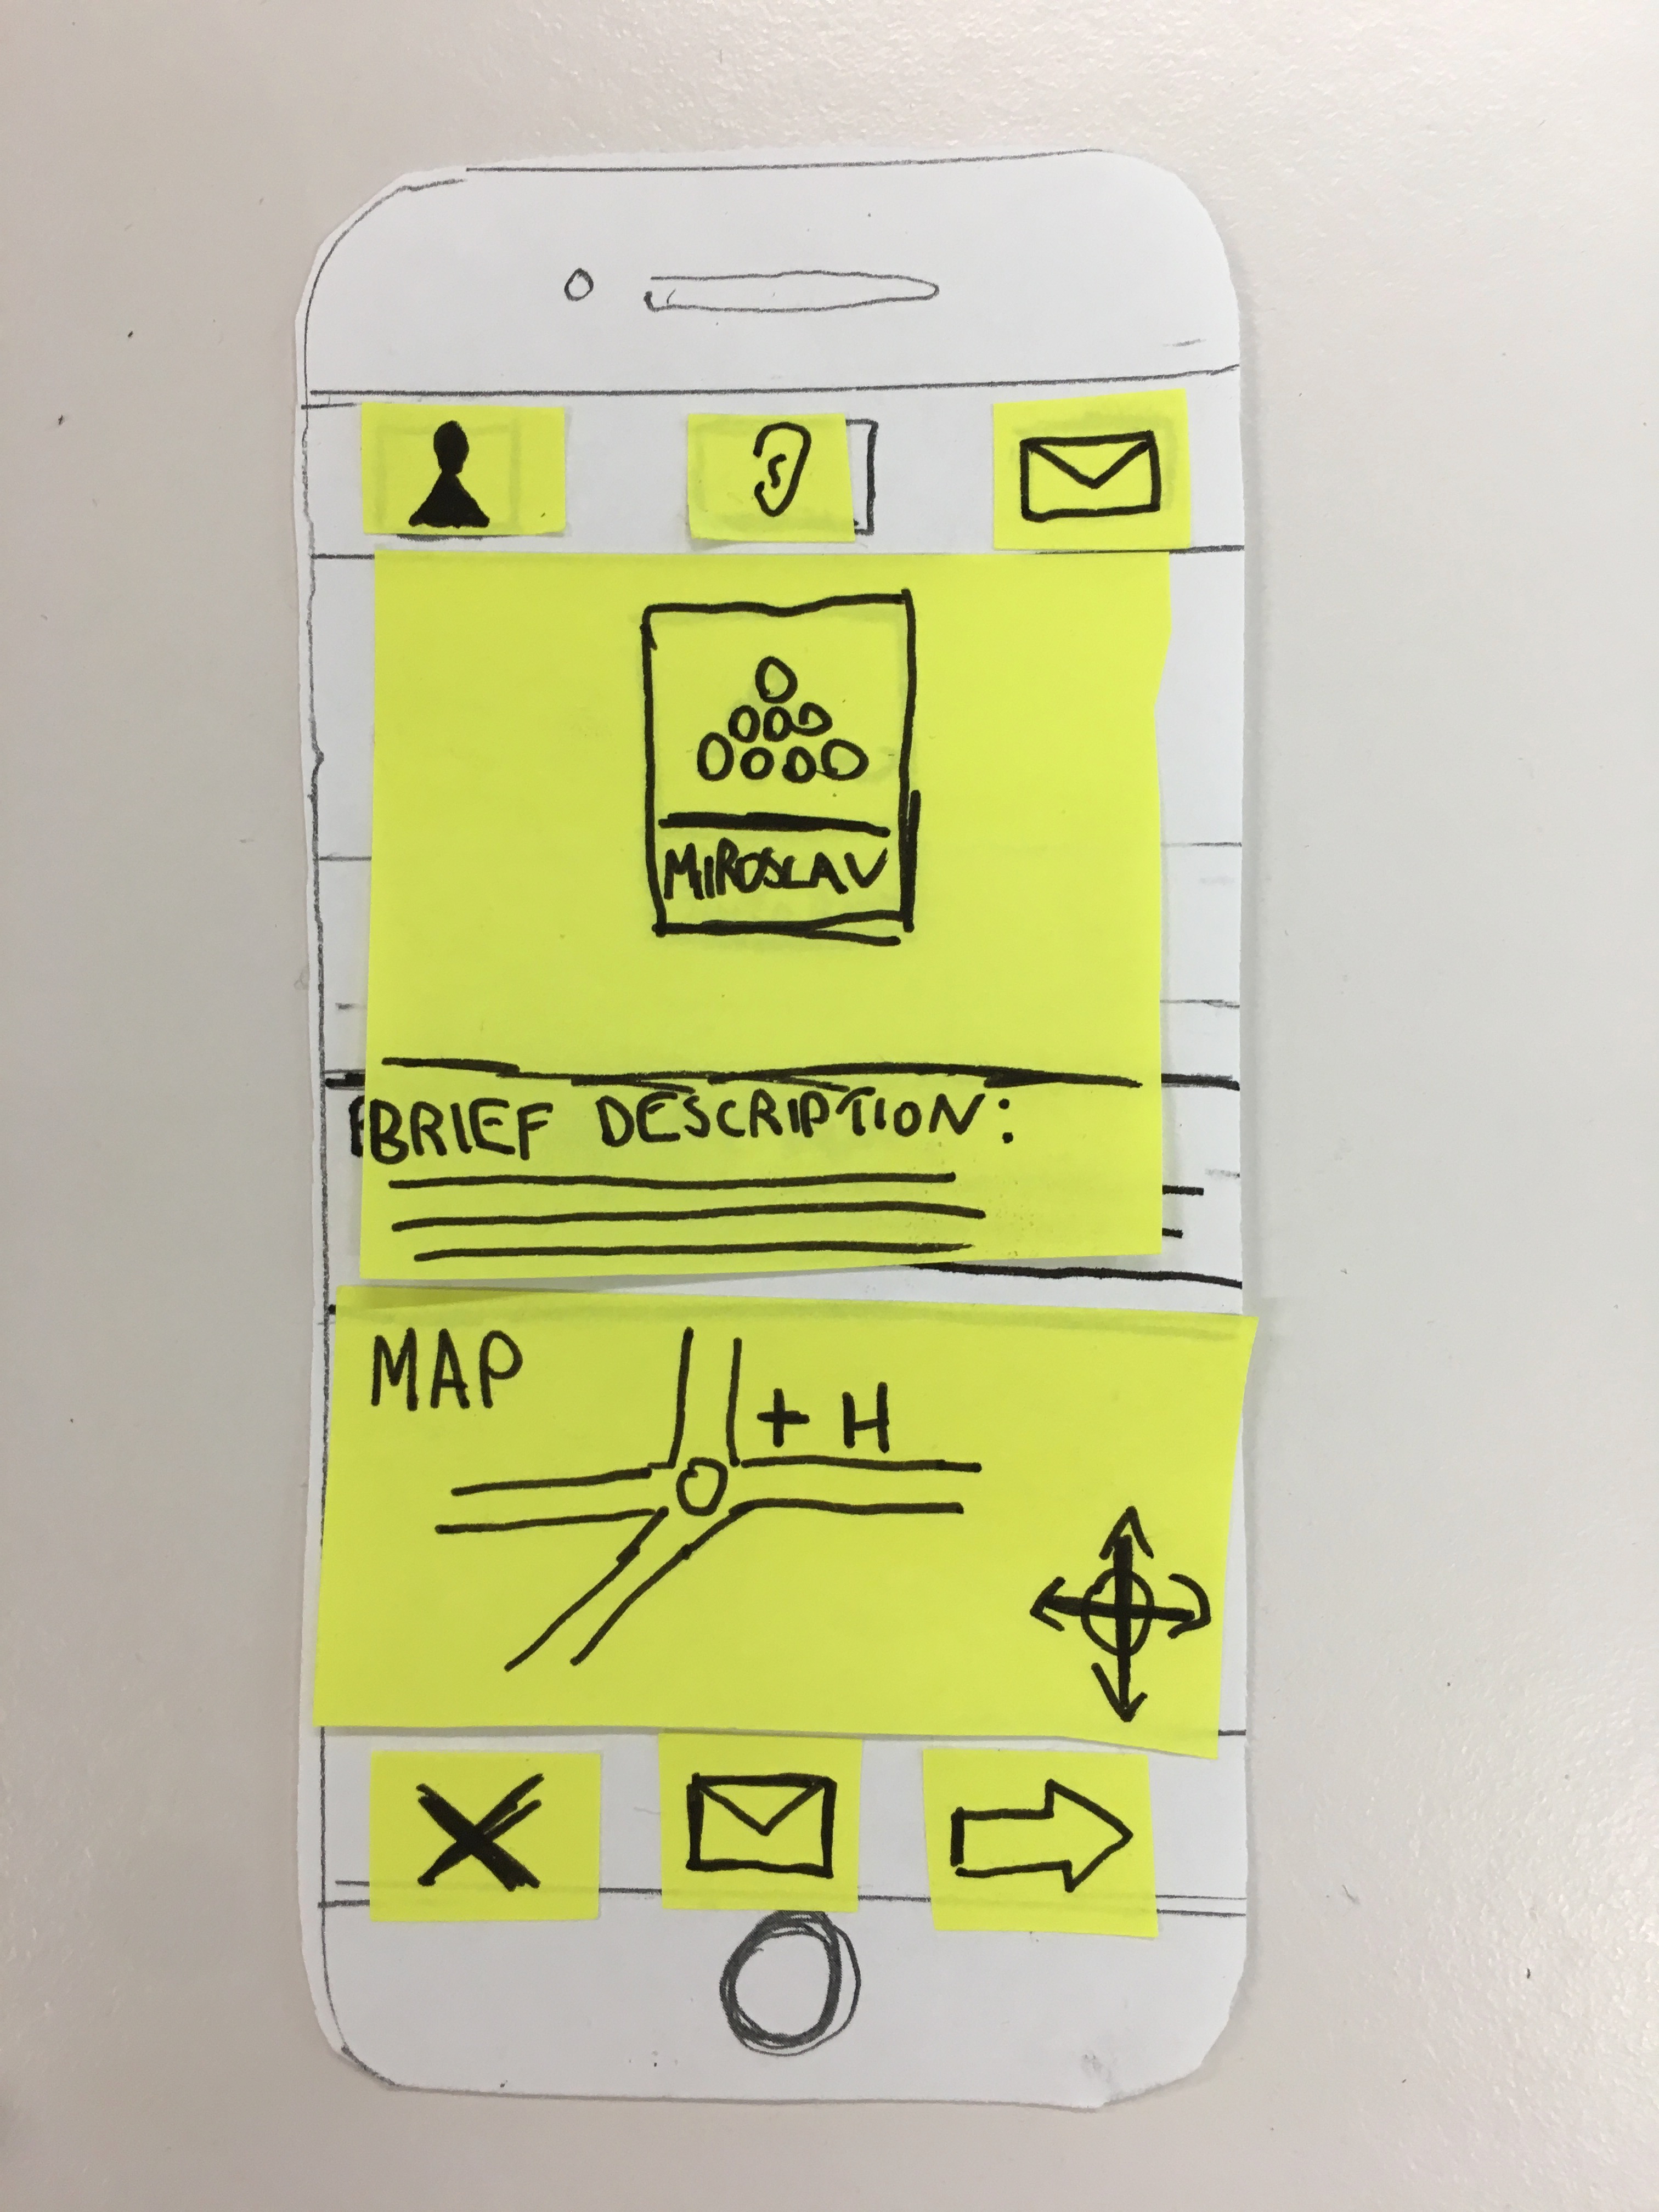 MIROSLAV
BRIEF DESCRIPTION:
MAP
+ H